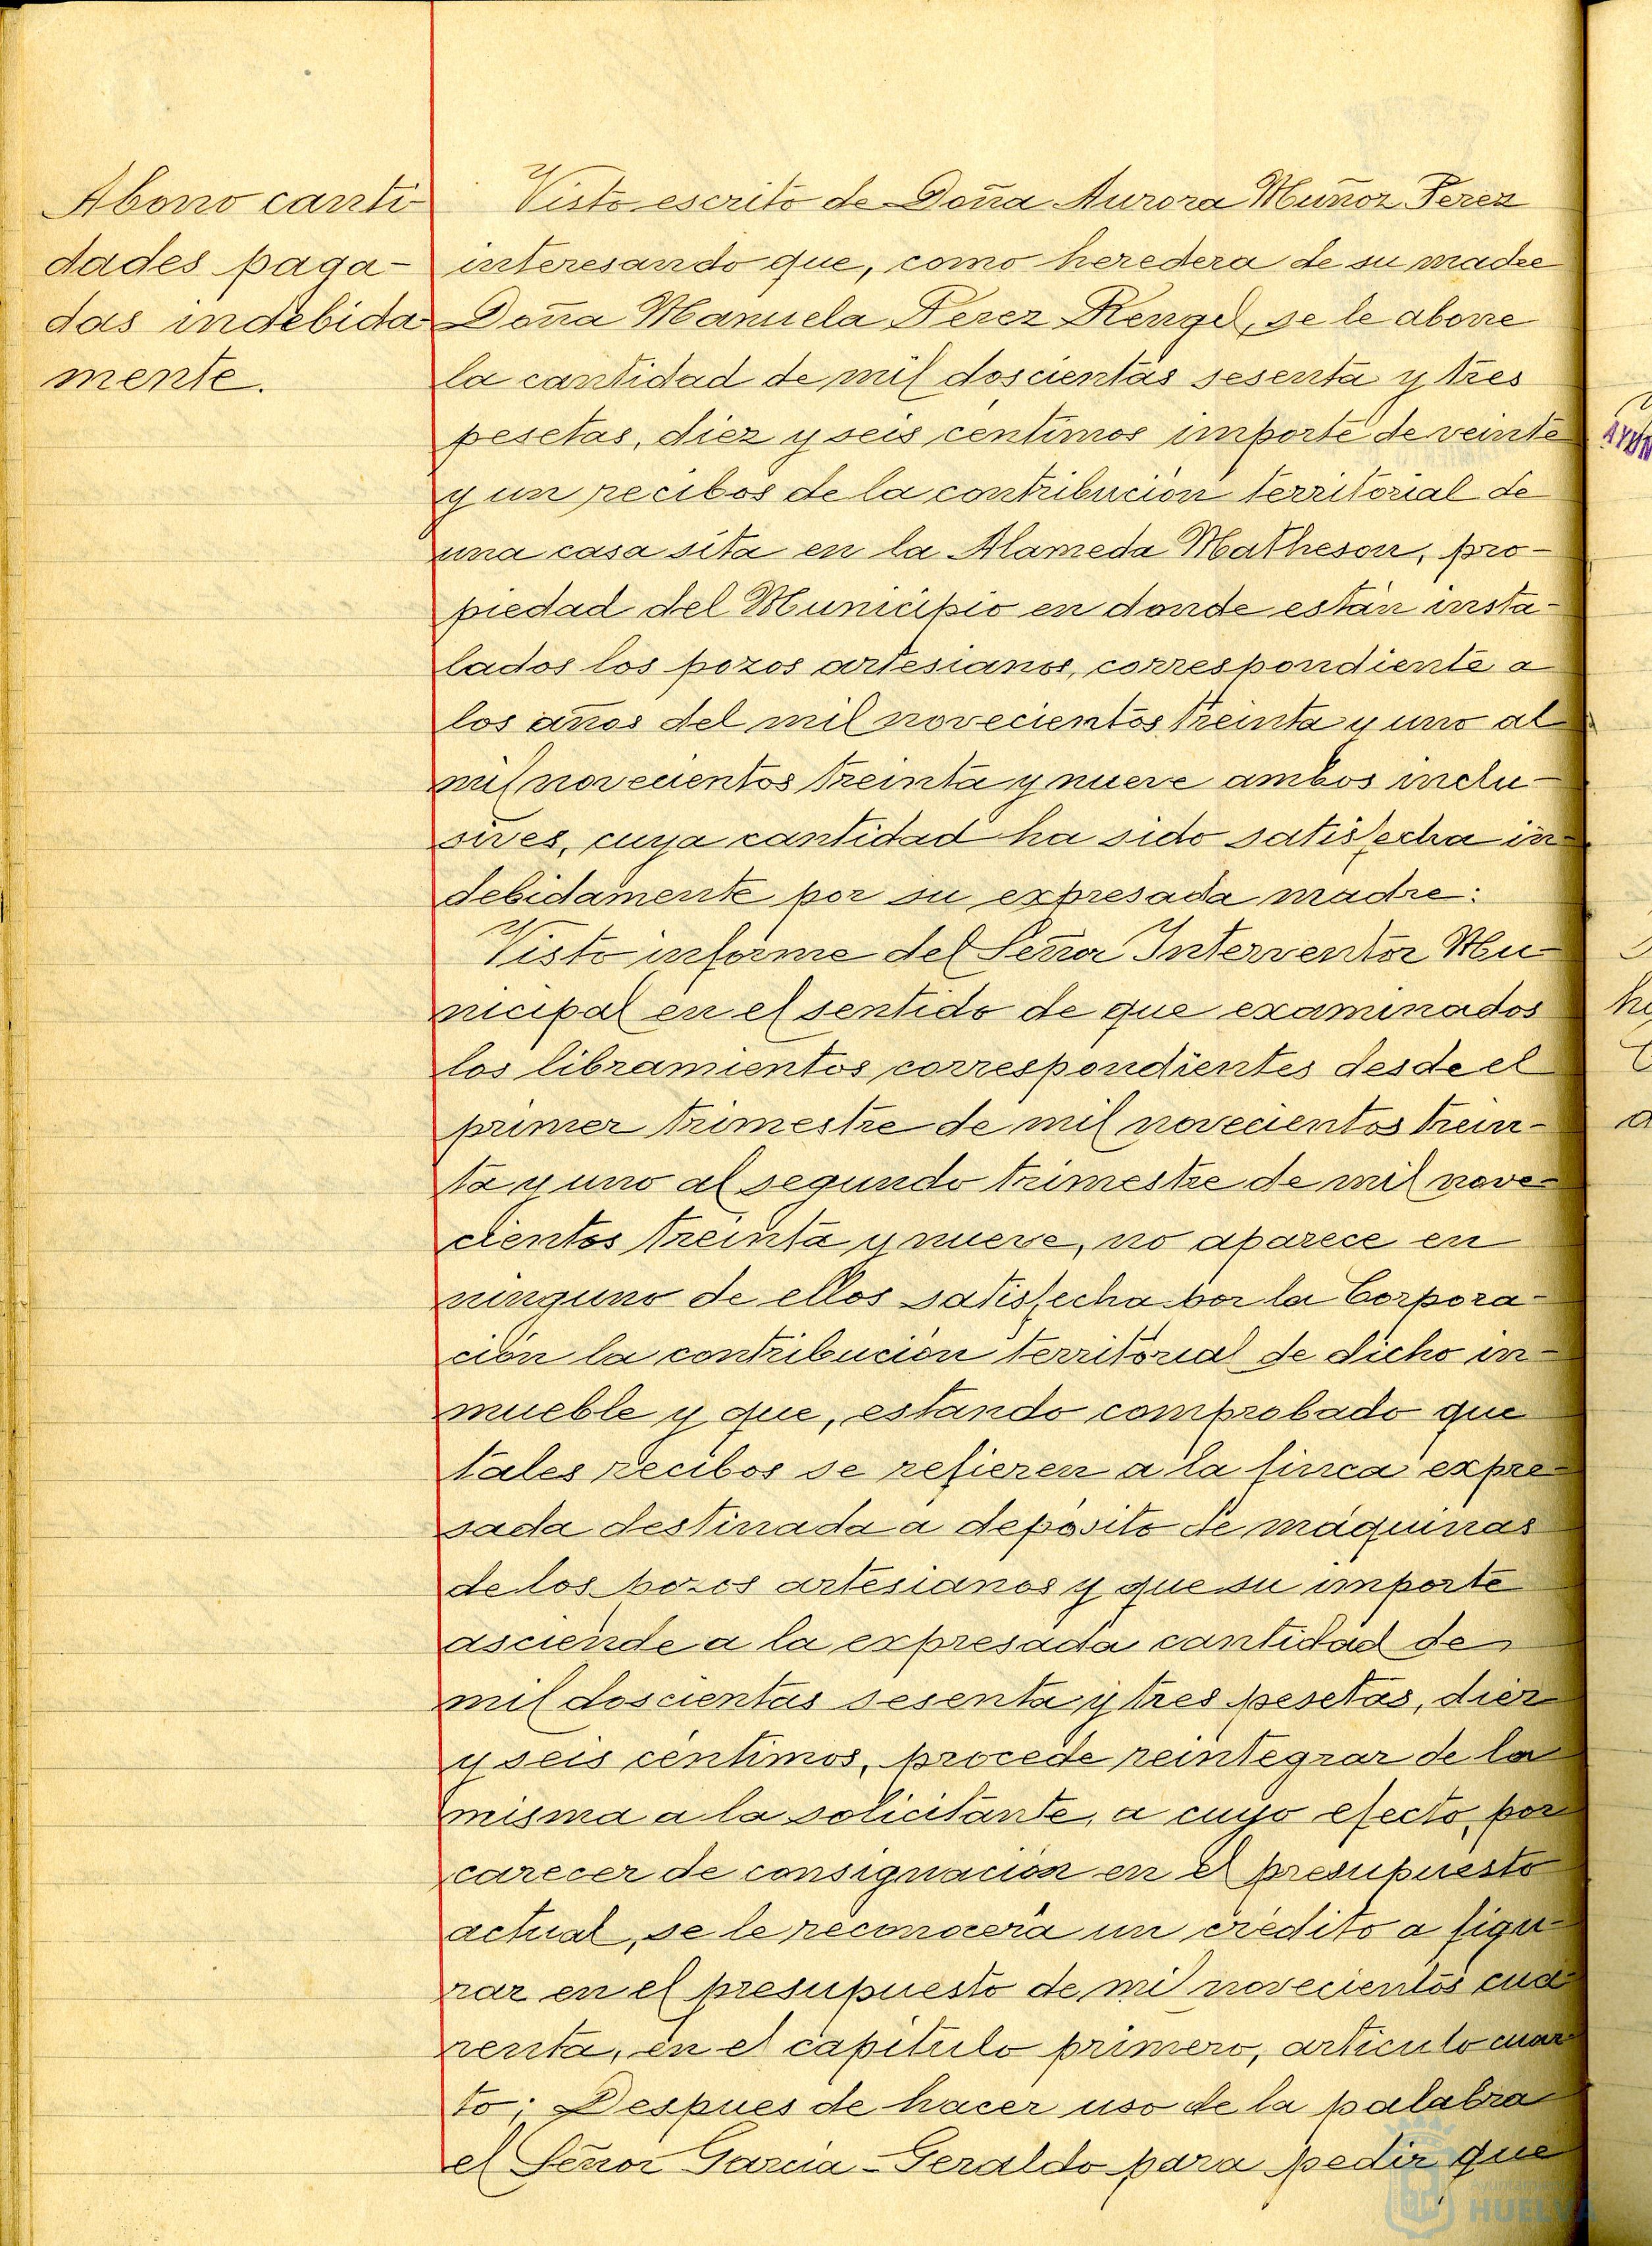 Abono canti-
dades paga-
das indebida
mente.
Visto escrito de Doña Aurora Muñoz Perez
interesando que, como heredera de su madre
Doña Manuela Perez Rengel, se le abone
la cantidad de mil doscientas sesenta y tres
pesetas, diez y seis centimos importe de veinte
y un recibos de la contribución territorial de
una casa sita en la Alameda Matheson, pro-
piedad del Municipio en donde están insta-
lados los pozos artesianos, correspondiente a
los años del mil novecientos treinta y uno al
mil novecientos treinta y nueve ambos inclu-
sives, cuya cantidad ha sido satisfecha in-
debidamente por su expresada madre:
Visto informe del Señor Interventor Mu-
nicipal en el sentido de que examinados
los libramientos correspondientes desde el
primer trimestre de mil novecientos trein-
ta y uno al segundo trimestre de mil nove-
cientos treinta y nueve, no aparece en
ninguno de ellos satisfecha por la Corpora-
ción la contribución territorial de dicho in-
mueble y que, estando comprobado que
tales recibos se refieren a la finca expre-
sada destinada a depósito de máquinas
de los pozos artesianos y que su importe
asciende a la expresada cantidad de
mil doscientas sesenta y tres pesetas, diez
y seis centimos, procede reintegrar de la
misma a la solicitante, a cuyo efecto, por
carecer de consignación en el presupuesto
actual, se le reconocerá un crédito a figu-
rar en el presupuesto de mil novecientos cua-
renta, en el capitulo primero, articulo cuar-
to; Despues de hacer uso de la palabra
el Señor Garcia-Geraldo para pedir que
HUELVA